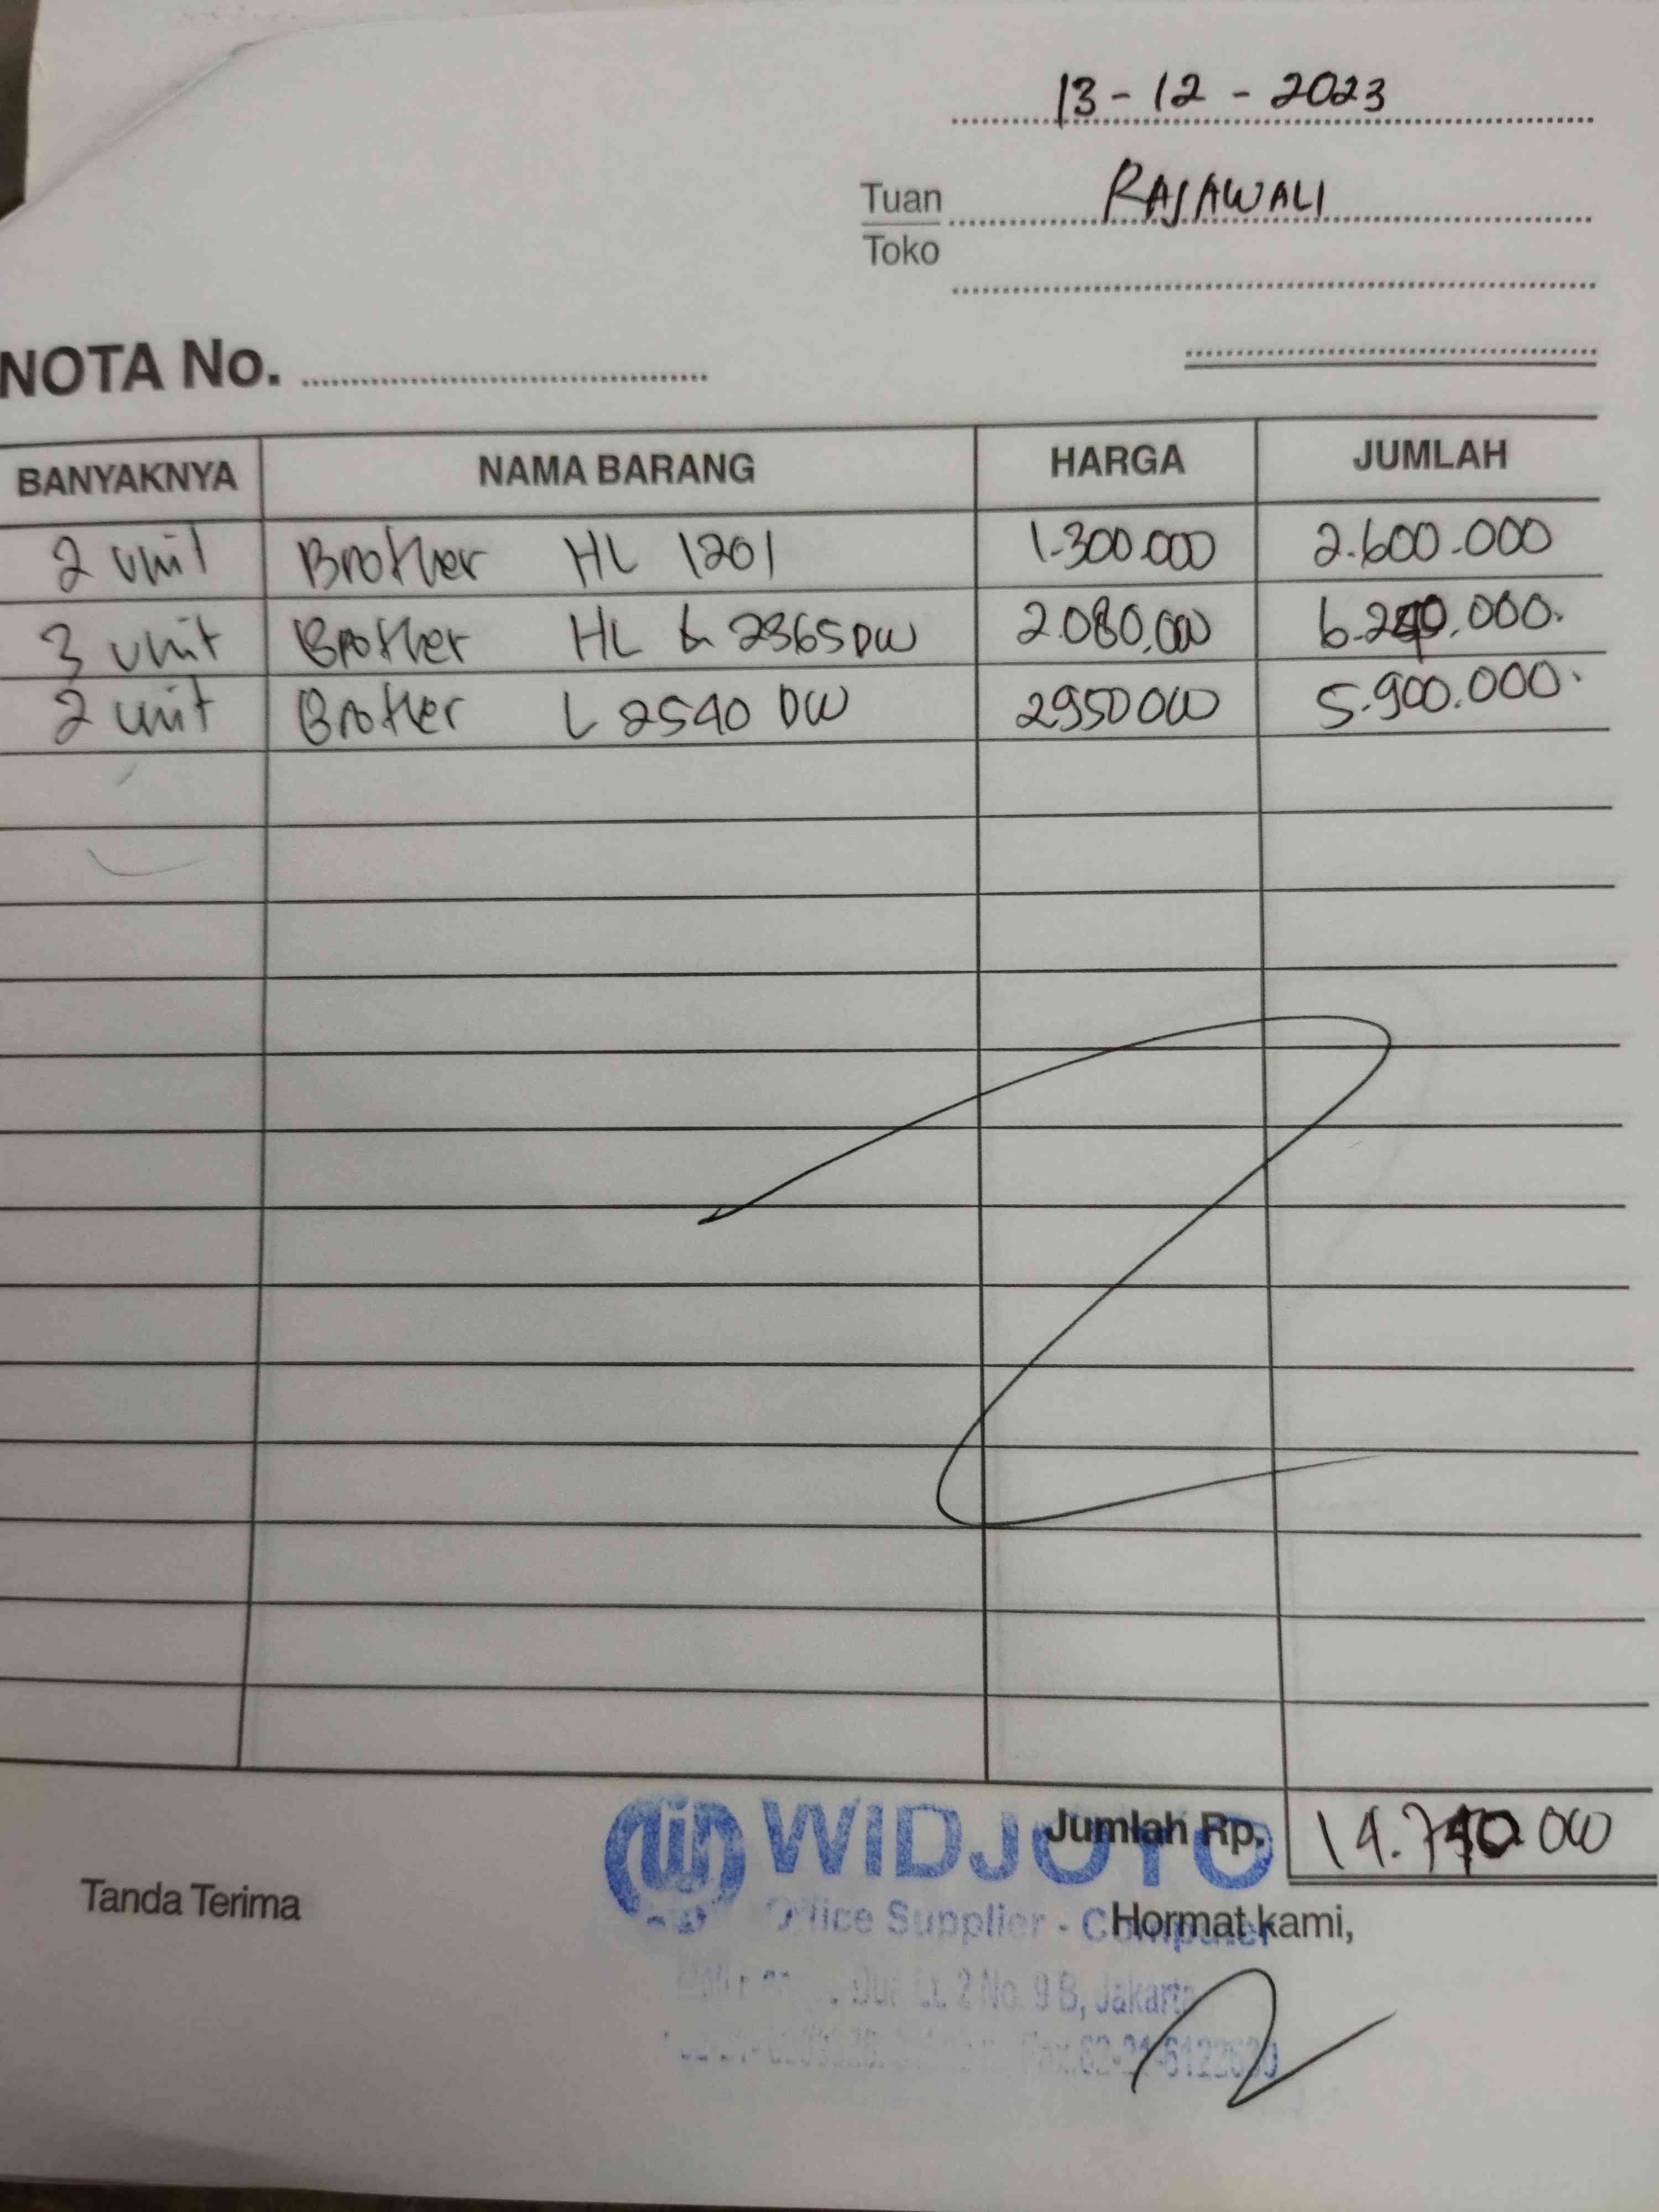 13 - 12 - 2023
Tuan RAJAWALI
Toko
NOTA No.
BANYAKNYA NAMA BARANG HARGA JUMLAH
2 unit Brother HL 1201 1.300.000 2.600.000
3 unit Brother HL L 2365 DW 2.080.000 6.240.000.
2 unit Brother L 2540 DW 2950000 5.900.000.
Jumlah Rp. 14.740.000
WIDJOYO
Tanda Terima
Office Supplier - Computer
Hormat kami,
Lt. 2 No. 9 B, Jakarta